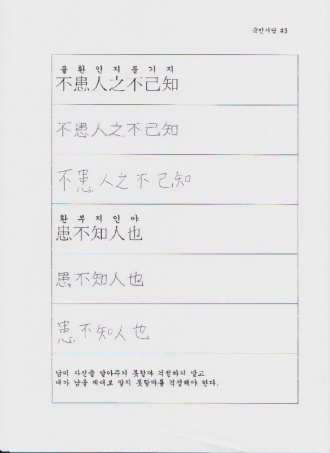 국민서당 #3
불환인지불기지
不患人之不己知
不患人之不己知
不患人之不己知
환부지인야
患不知人也
患不知人也
患不知人也
남이 자신을 알아주지 못할까 걱정하지 말고
내가 남을 제대로 알지 못할까를 걱정해야 한다.